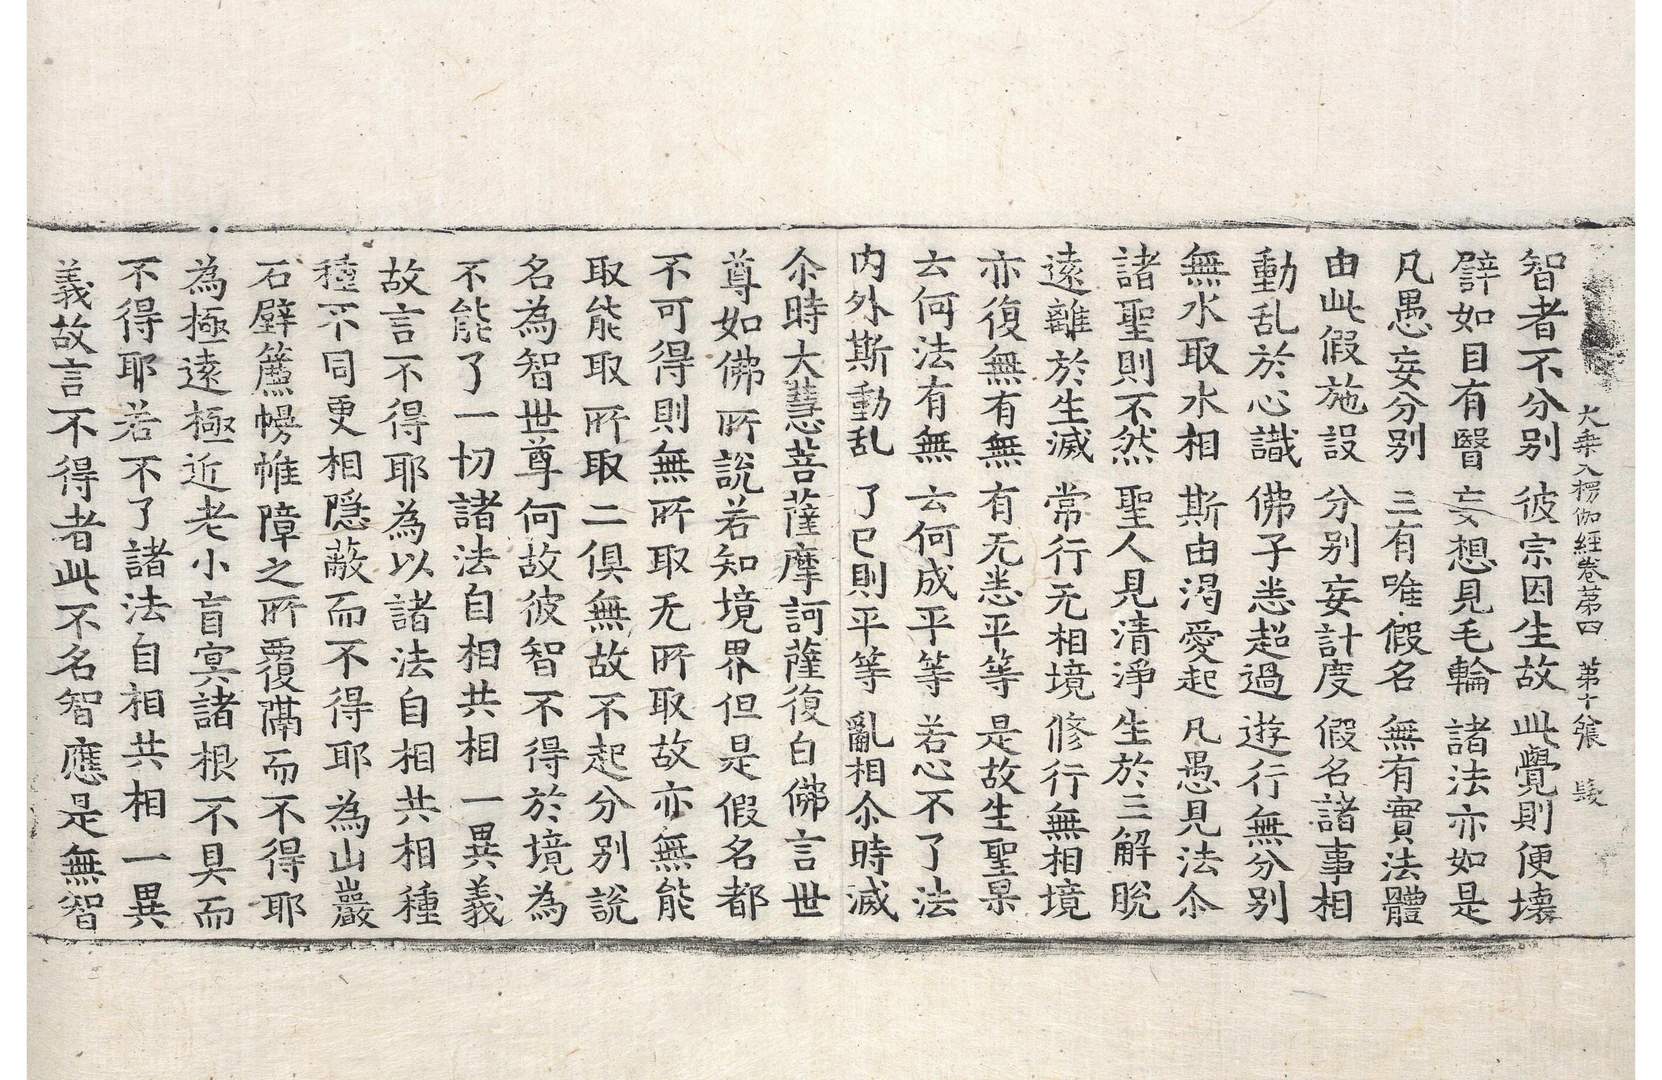 大乘入楞伽經卷第四 第十張
智者不分別 彼宗因生故 此覺則便壞
譬如目有瞖 妄想見毛輪 諸法亦如是
凡愚妄分別 三有唯假名 無有實法體
由此假施設 分別妄計度 假名諸事相
動乱於心識 佛子悉超過 遊行無分別
無水取水相 斯由渴愛起 凡愚見法尒
諸聖則不然 聖人見清淨 生於三解脫
遠離於生滅 常行无相境 修行無相境
亦復無有無 有无悉平等 是故生聖果
云何法有無 云何成平等 若心不了法
内外斯動乱 了已則平等 亂相尒時滅
尒時大慧菩薩摩訶薩復白佛言世
尊如佛所說若知境界但是假名都
不可得則無所取无所取故亦無能
取能取所取二俱無故不起分別說
名為智世尊何故彼智不得於境為
不能了一切諸法自相共相一異義
故言不得耶為以諸法自相共相種
種不同更相隱蔽而不得耶為山巖
石壁簾幔帷障之所覆隔而不得耶
為極遠極近老小盲冥諸根不具而
不得耶若不了諸法自相共相一異
義故言不得者此不名智應是無智